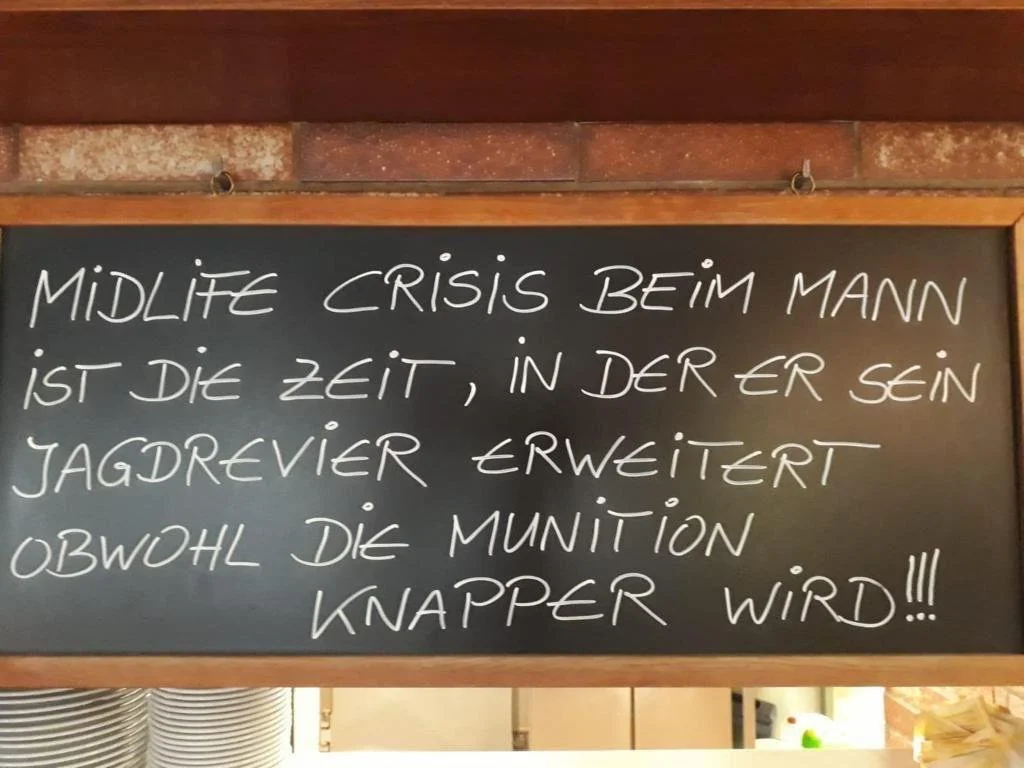 MIDLIFE CRISIS BEIM MANN
IST DIE ZEIT, IN DER ER SEIN
JAGDREVIER ERWEITERT
OBWOHL DIE MUNITION
KNAPPER WIRD!!!